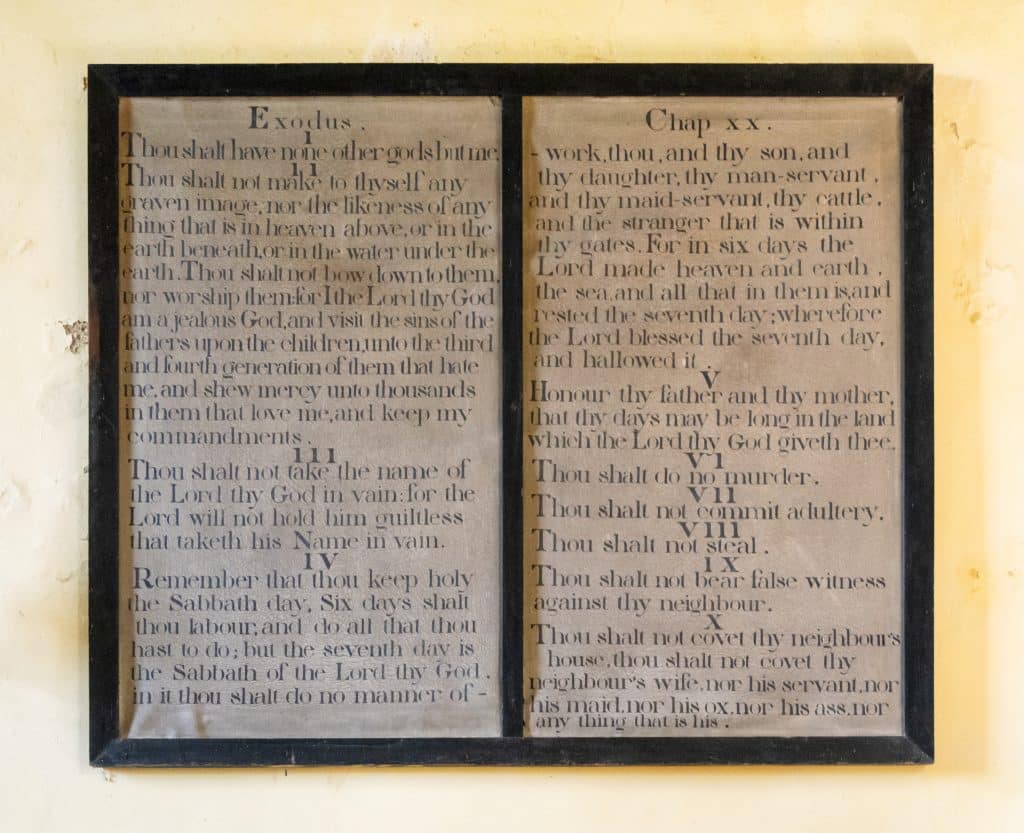 Exodus.
I
Thou shalt have none other gods but me.
II
Thou shalt not make to thyself any
graven image, nor the likeness of any
thing that is in heaven above, or in the
earth beneath, or in the water under the
earth. Thou shalt not bow down to them,
nor worship them: for I the Lord thy God
am a jealous God, and visit the sins of the
fathers upon the children, unto the third
and fourth generation of them that hate
me, and shew mercy unto thousands
in them that love me, and keep my
commandments.
III
Thou shalt not take the name of
the Lord thy God in vain: for the
Lord will not hold him guiltless
that taketh his Name in vain.
IV
Remember that thou keep holy
the Sabbath day, Six days shalt
thou labour, and do all that thou
hast to do; but the seventh day is
the Sabbath of the Lord thy God,
in it thou shalt do no manner of -
Chap xx.
- work, thou, and thy son, and
thy daughter, thy man-servant,
and thy maid-servant, thy cattle,
and the stranger that is within
thy gates. For in six days the
Lord made heaven and earth,
the sea, and all that in them is, and
rested the seventh day; wherefore
the Lord blessed the seventh day,
and hallowed it.
V
Honour thy father and thy mother,
that thy days may be long in the land
which the Lord thy God giveth thee.
VI
Thou shalt do no murder.
VII
Thou shalt not commit adultery.
VIII
Thou shalt not steal.
IX
Thou shalt not bear false witness
against thy neighbour.
X
Thou shalt not covet thy neighbour's
house, thou shalt not covet thy
neighbour's wife, nor his servant, nor
his maid, nor his ox, nor his ass, nor
any thing that is his.